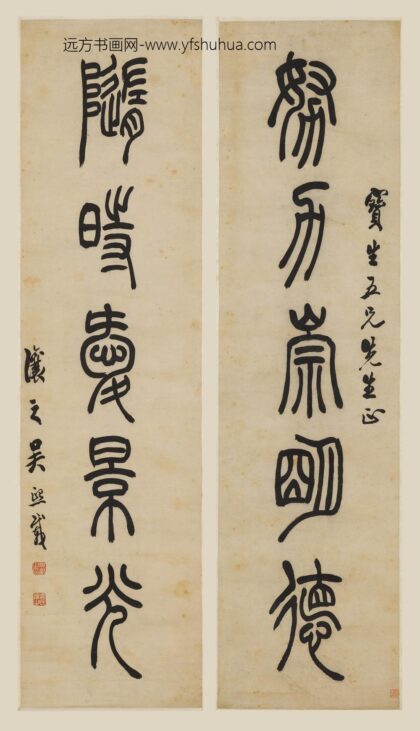 远方书画网-www.yfshuhua.com
寶生五兄先生正
努力崇明德
隨時愛景光
讓之吳熙載